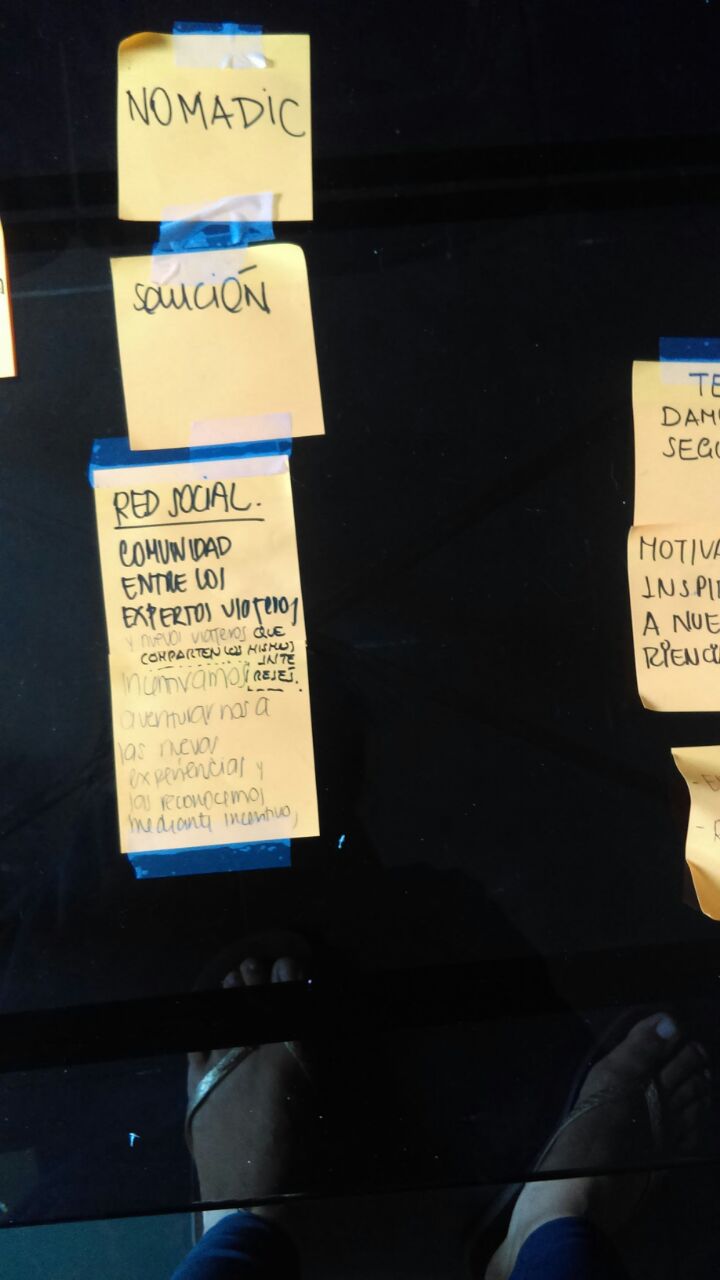 NOMADIC
SOLUCIÓN
RED SOCIAL.
COMUNIDAD
ENTRE LOS
EXPERTOS viajeros
y nuevos viajeros QUE
COMPARTEN LOS MISMOS
INTE
incentivamos RESES.
aventurarnos a
las nuevas
experiencias y
las reconocemos
mediante incentivos,
TE
DAM
SEGU
MOTIVA
INSPI
A NUE
RIENCI